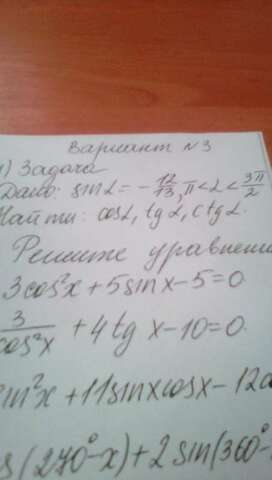 Вариант №3
1) Задача
Дано: sin α = - 12/13, π < α < 3π/2
Найти: cos α, tg α, ctg α.
Решите уравнени
3cos²x + 5sin x - 5 = 0
3/cos²x + 4tg x - 10 = 0.
in²x + 11sinx cosx - 12c
s(270° - x) + 2 sin(360° -